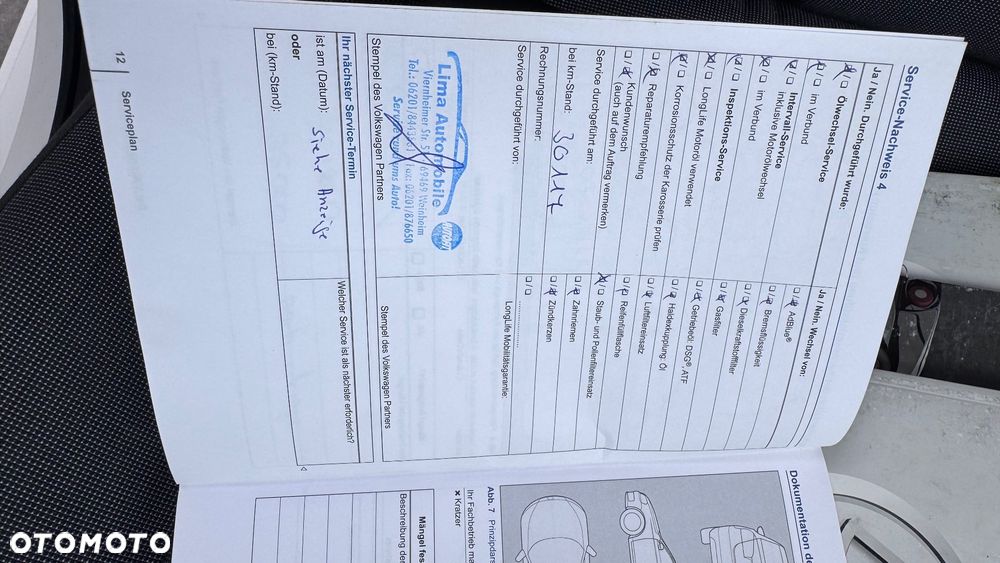 Service-Nachweis 4
Ja / Nein, Durchgeführt wurde:
Ölwechsel-Service
im Verbund
Intervall-Service
inklusive Motorölwechsel
im Verbund
Inspektions-Service
LongLife Motoröl verwendet
Korrosionsschutz der Karosserie prüfen
Reparaturempfehlung
Kundenwunsch
(auch auf dem Auftrag vermerken)
Service durchgeführt am:
bei km-Stand: 30117
Rechnungsnummer:
Service durchgeführt von:
Lima Automobile
Viernheimer Str. 69469 Weinheim
Fax: 06201/876650
Service rund ums Auto!
Stempel des Volkswagen Partners
Ja / Nein, Wechsel von:
AdBlue®
Bremsflüssigkeit
Dieselkraftstofffilter
Gasfilter
Getriebeöl: DSG®, ATF
Haldexkupplung: Öl
Luftfiltereinsatz
Reifenfüllflasche
Staub- und Pollenfiltereinsatz
Zahnriemen
Zündkerzen
LongLife Mobilitätsgarantie:
Stempel des Volkswagen Partners
Ihr nächster Service-Termin
ist am (Datum): siehe Anzeige
oder
bei (km-Stand):
Welcher Service ist als nächster erforderlich?
12
Serviceplan
Dokumentation de
Abb. 7 Prinzipdars
Ihr Fachbetrieb ma
× Kratzer
Mängel fes
Beschreibung der
OTOMOTO